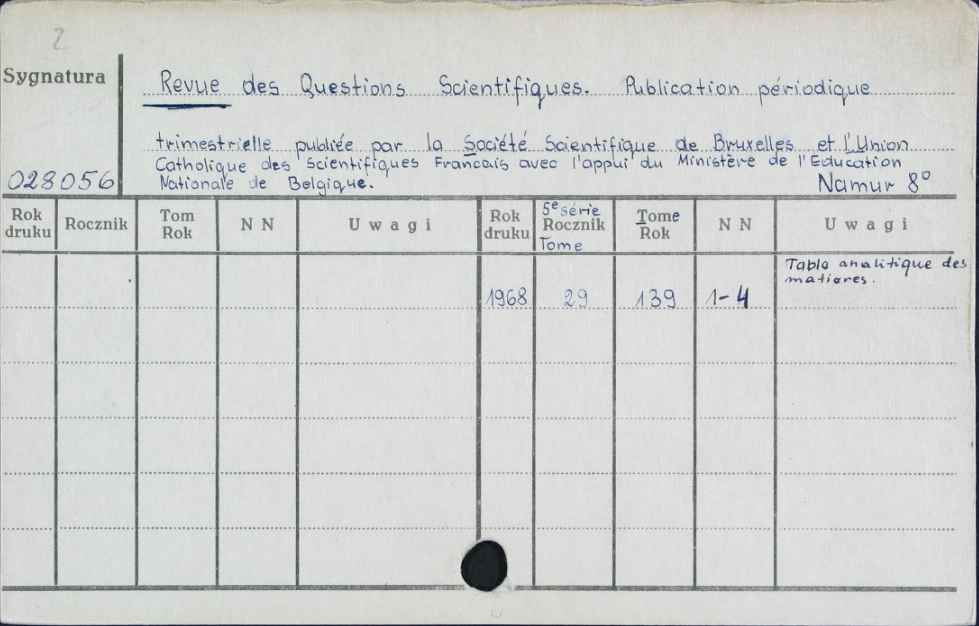 2
Sygnatura
Revue des Questions Scientifiques. Publication périodique
trimestrielle publiée par la Société Scientifique de Bruxelles et l'Union
Catholique des Scientifiques Francais avec l'appui du Ministère de l'Education
028056 Nationale de Belgique. Namur 8°
Rok druku Rocznik Tom Rok N N Uwagi Rok druku 5e série Rocznik Tome Tome Rok N N Uwagi
Table analitique des
matieres.
1968 29 139 1-4